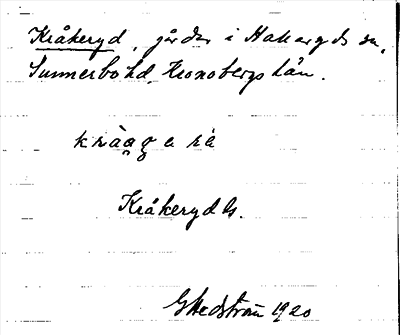 Kråkeryd, gårdar i Hallaryds sn,
Sunnerbo hd, Kronobergs län.
Kråkeryds.
GHedström 1920